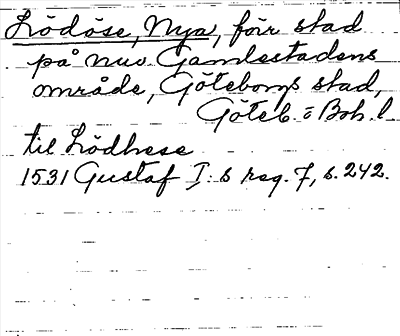 Lödöse, Nya, förr stad
på nuv. Gamlestadens
område, Göteborgs stad,
Göteb. o Boh. l
til Lödhese
1531 Gustaf I:s reg. 7, s. 242.